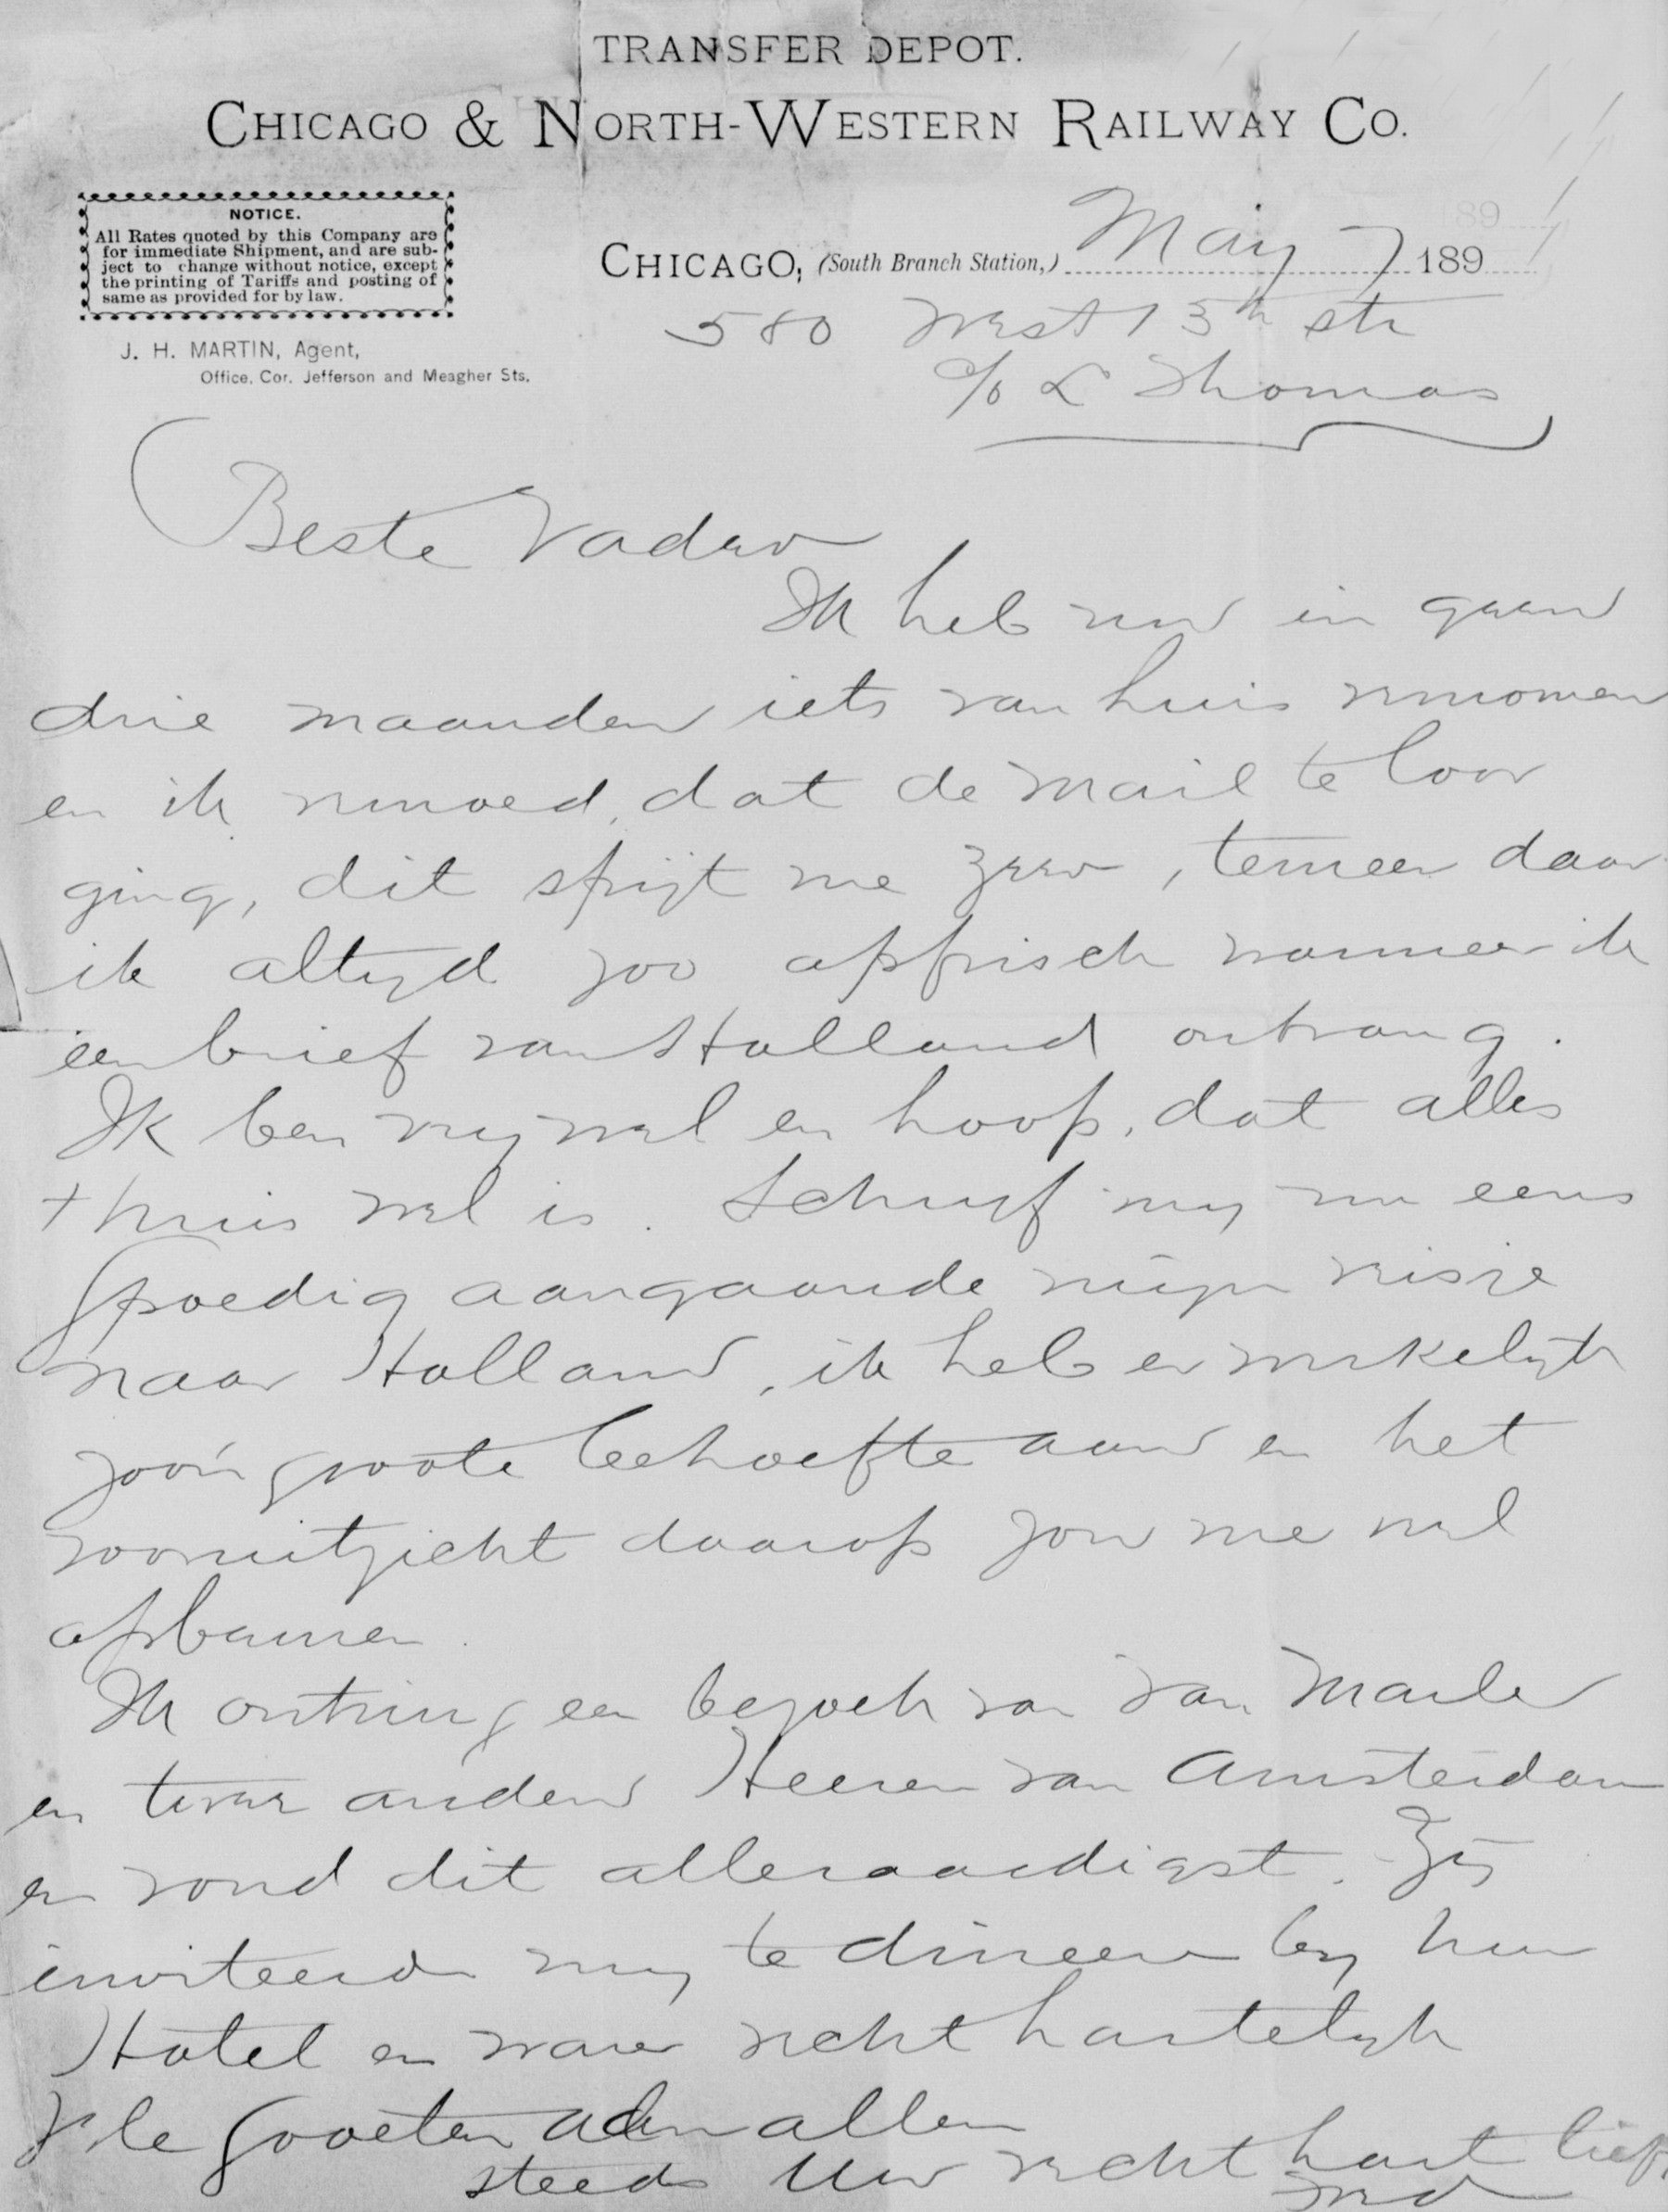 TRANSFER DEPOT.
CHICAGO & NORTH-WESTERN RAILWAY CO.
NOTICE.
All Rates quoted by this Company are
for immediate Shipment, and are sub-
ject to change without notice, except
the printing of Tariffs and posting of
same as provided for by law.
J. H. MARTIN, Agent,
Office, Cor. Jefferson and Meagher Sts.
CHICAGO, (South Branch Station,) May 7 189
580 West 13th str
c/o L Thomas
Beste Vader
Ik heb nu in geen
drie maanden iets van huis vernomen
en ik vermoed, dat de mail te loor
ging, dit spijt me zeer, temeer daar
ik altyd zoo opfrisch wanneer ik
een brief van Holland ontvang.
Ik ben vry wel en hoop, dat alles
thuis wel is. Schryf my nu eens
spoedig aangaande mijn reisje
naar Holland, ik heb er werkelyk
zoo'n groote behoefte aan en het
vooruitzicht daarop zou me wel
opbeuren.
Ik ontving een bezoek van van Marle
en twee andere Heeren van Amsterdam
en vond dit alleraardigst. Zij
inviteerden my te dineeren by hun
Hotel en waren recht hartelyk
Vele groeten aan allen
steeds Uw recht hart liefh